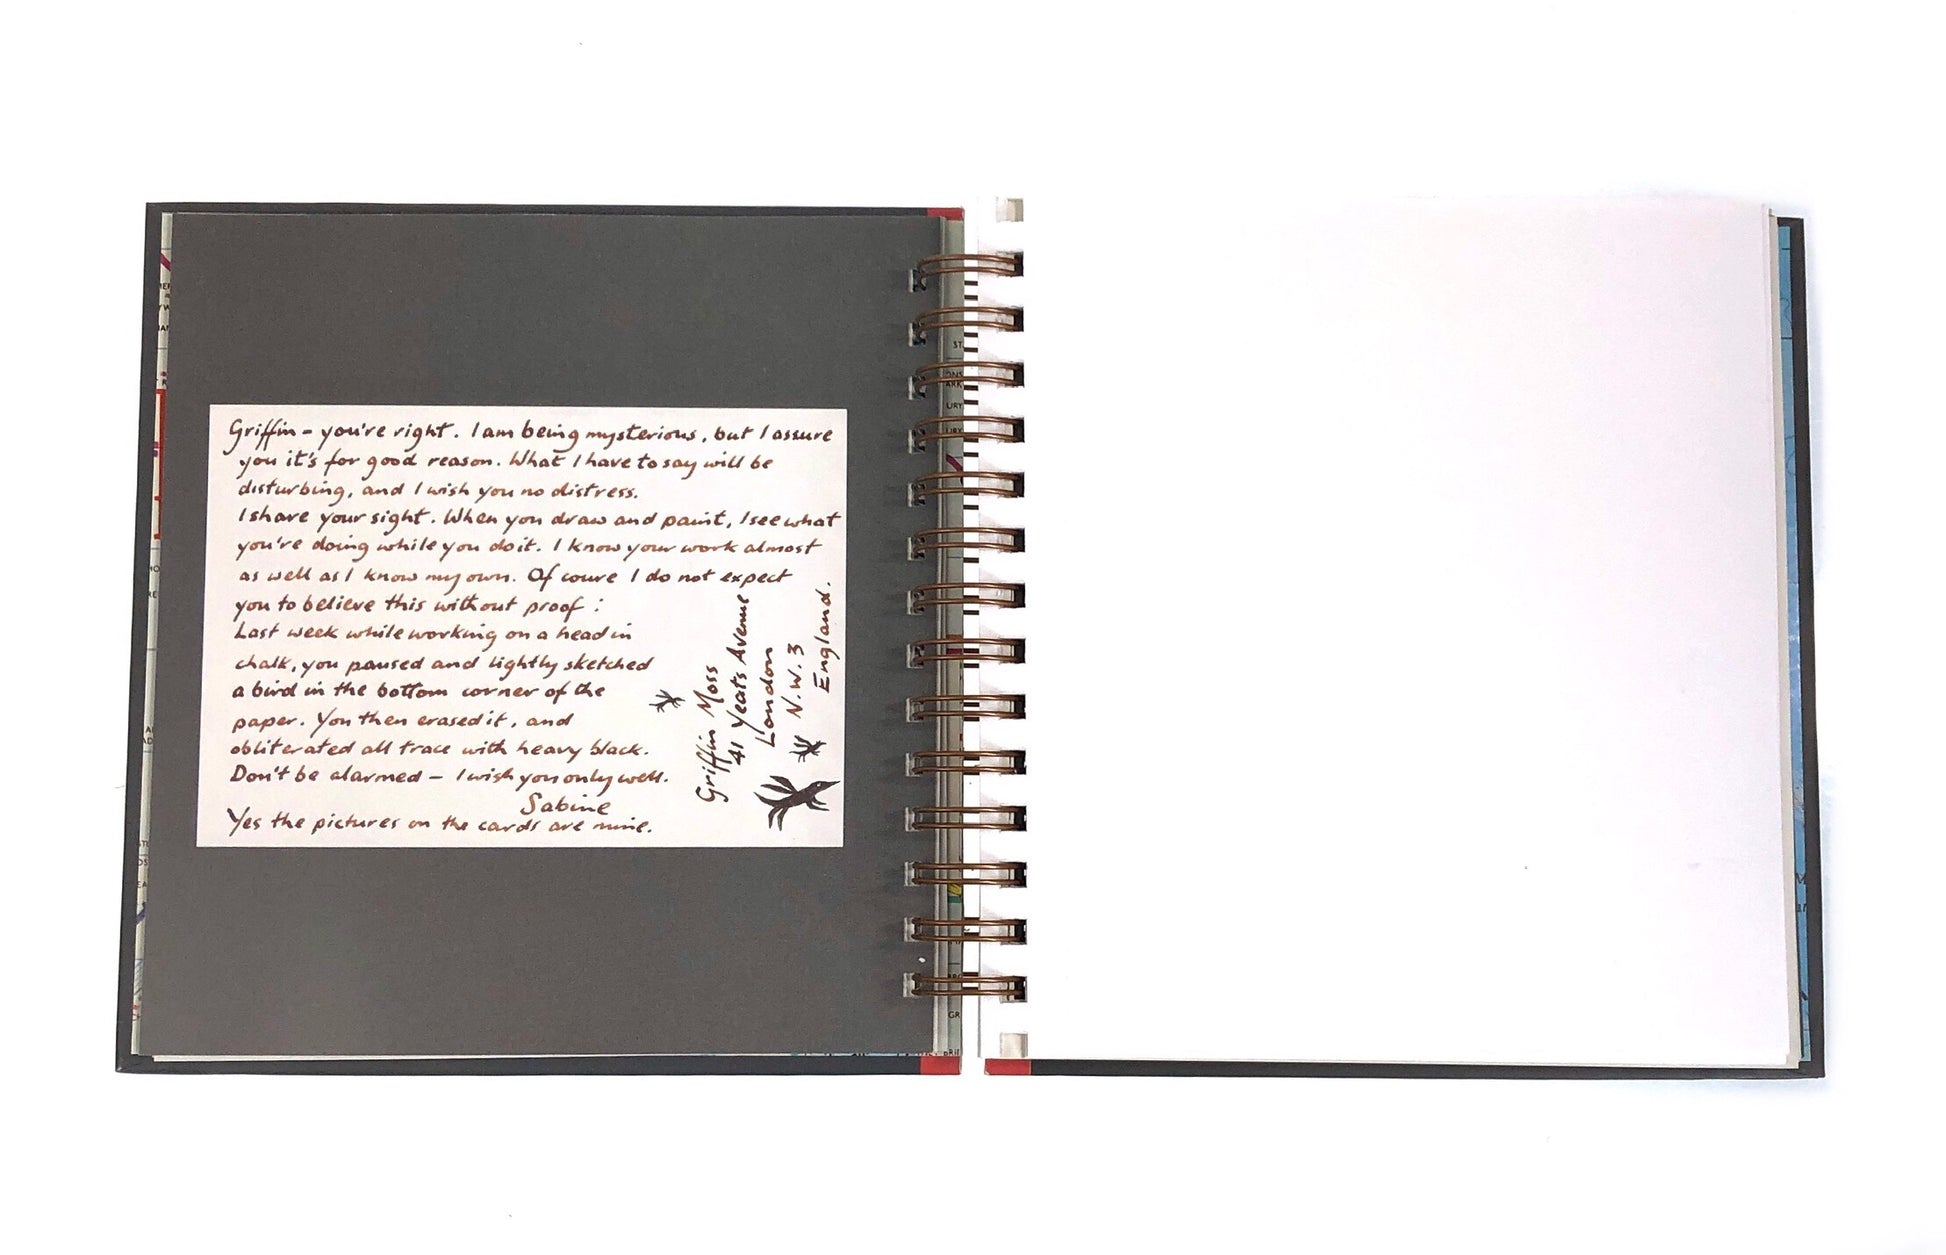 Griffin – you're right. I am being mysterious, but I assure
you it's for good reason. What I have to say will be
disturbing, and I wish you no distress.
I share your sight. When you draw and paint, I see what
you're doing while you do it. I know your work almost
as well as I know my own. Of course I do not expect
you to believe this without proof :
Last week while working on a head in
chalk, you paused and lightly sketched
a bird in the bottom corner of the
paper. You then erased it, and
obliterated all trace with heavy black.
Don't be alarmed – I wish you only well.
Sabine
Yes the pictures on the cards are mine.
Griffin Moss
41 Yeats Avenue
London
N.W.3
England.